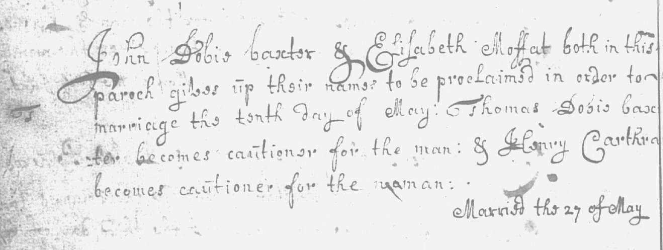 John Dobie baxter & Elisabeth Moffat both in this
paroch gives up their names to be proclaimed in order to
marriage the tenth day of May: Thomas Dobie bax
ter becomes cautioner for the man: & Henry Carthra
becomes cautioner for the woman:
Married the 27 of May